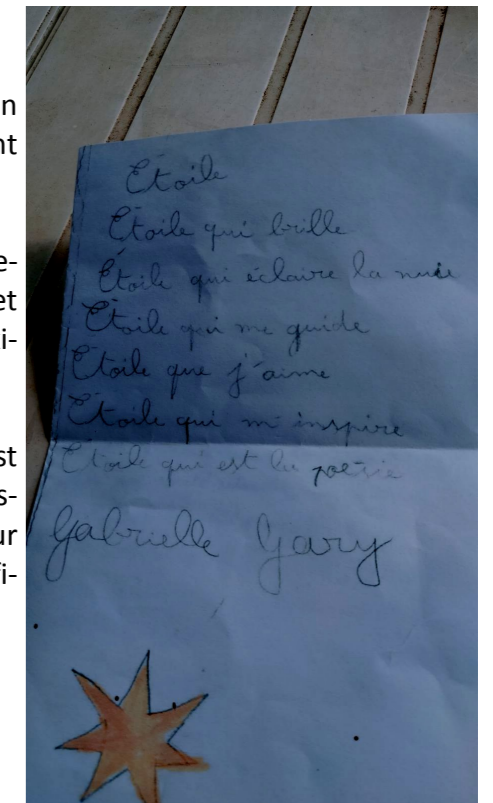 n
nt
e-
et
i-
st
s-
ur
fi-
Étoile
Étoile qui brille
Étoile qui éclaire la nuit
Étoile qui me guide
Étoile que j'aime
Étoile qui m'inspire
Étoile qui est la poésie
Gabrielle Gary